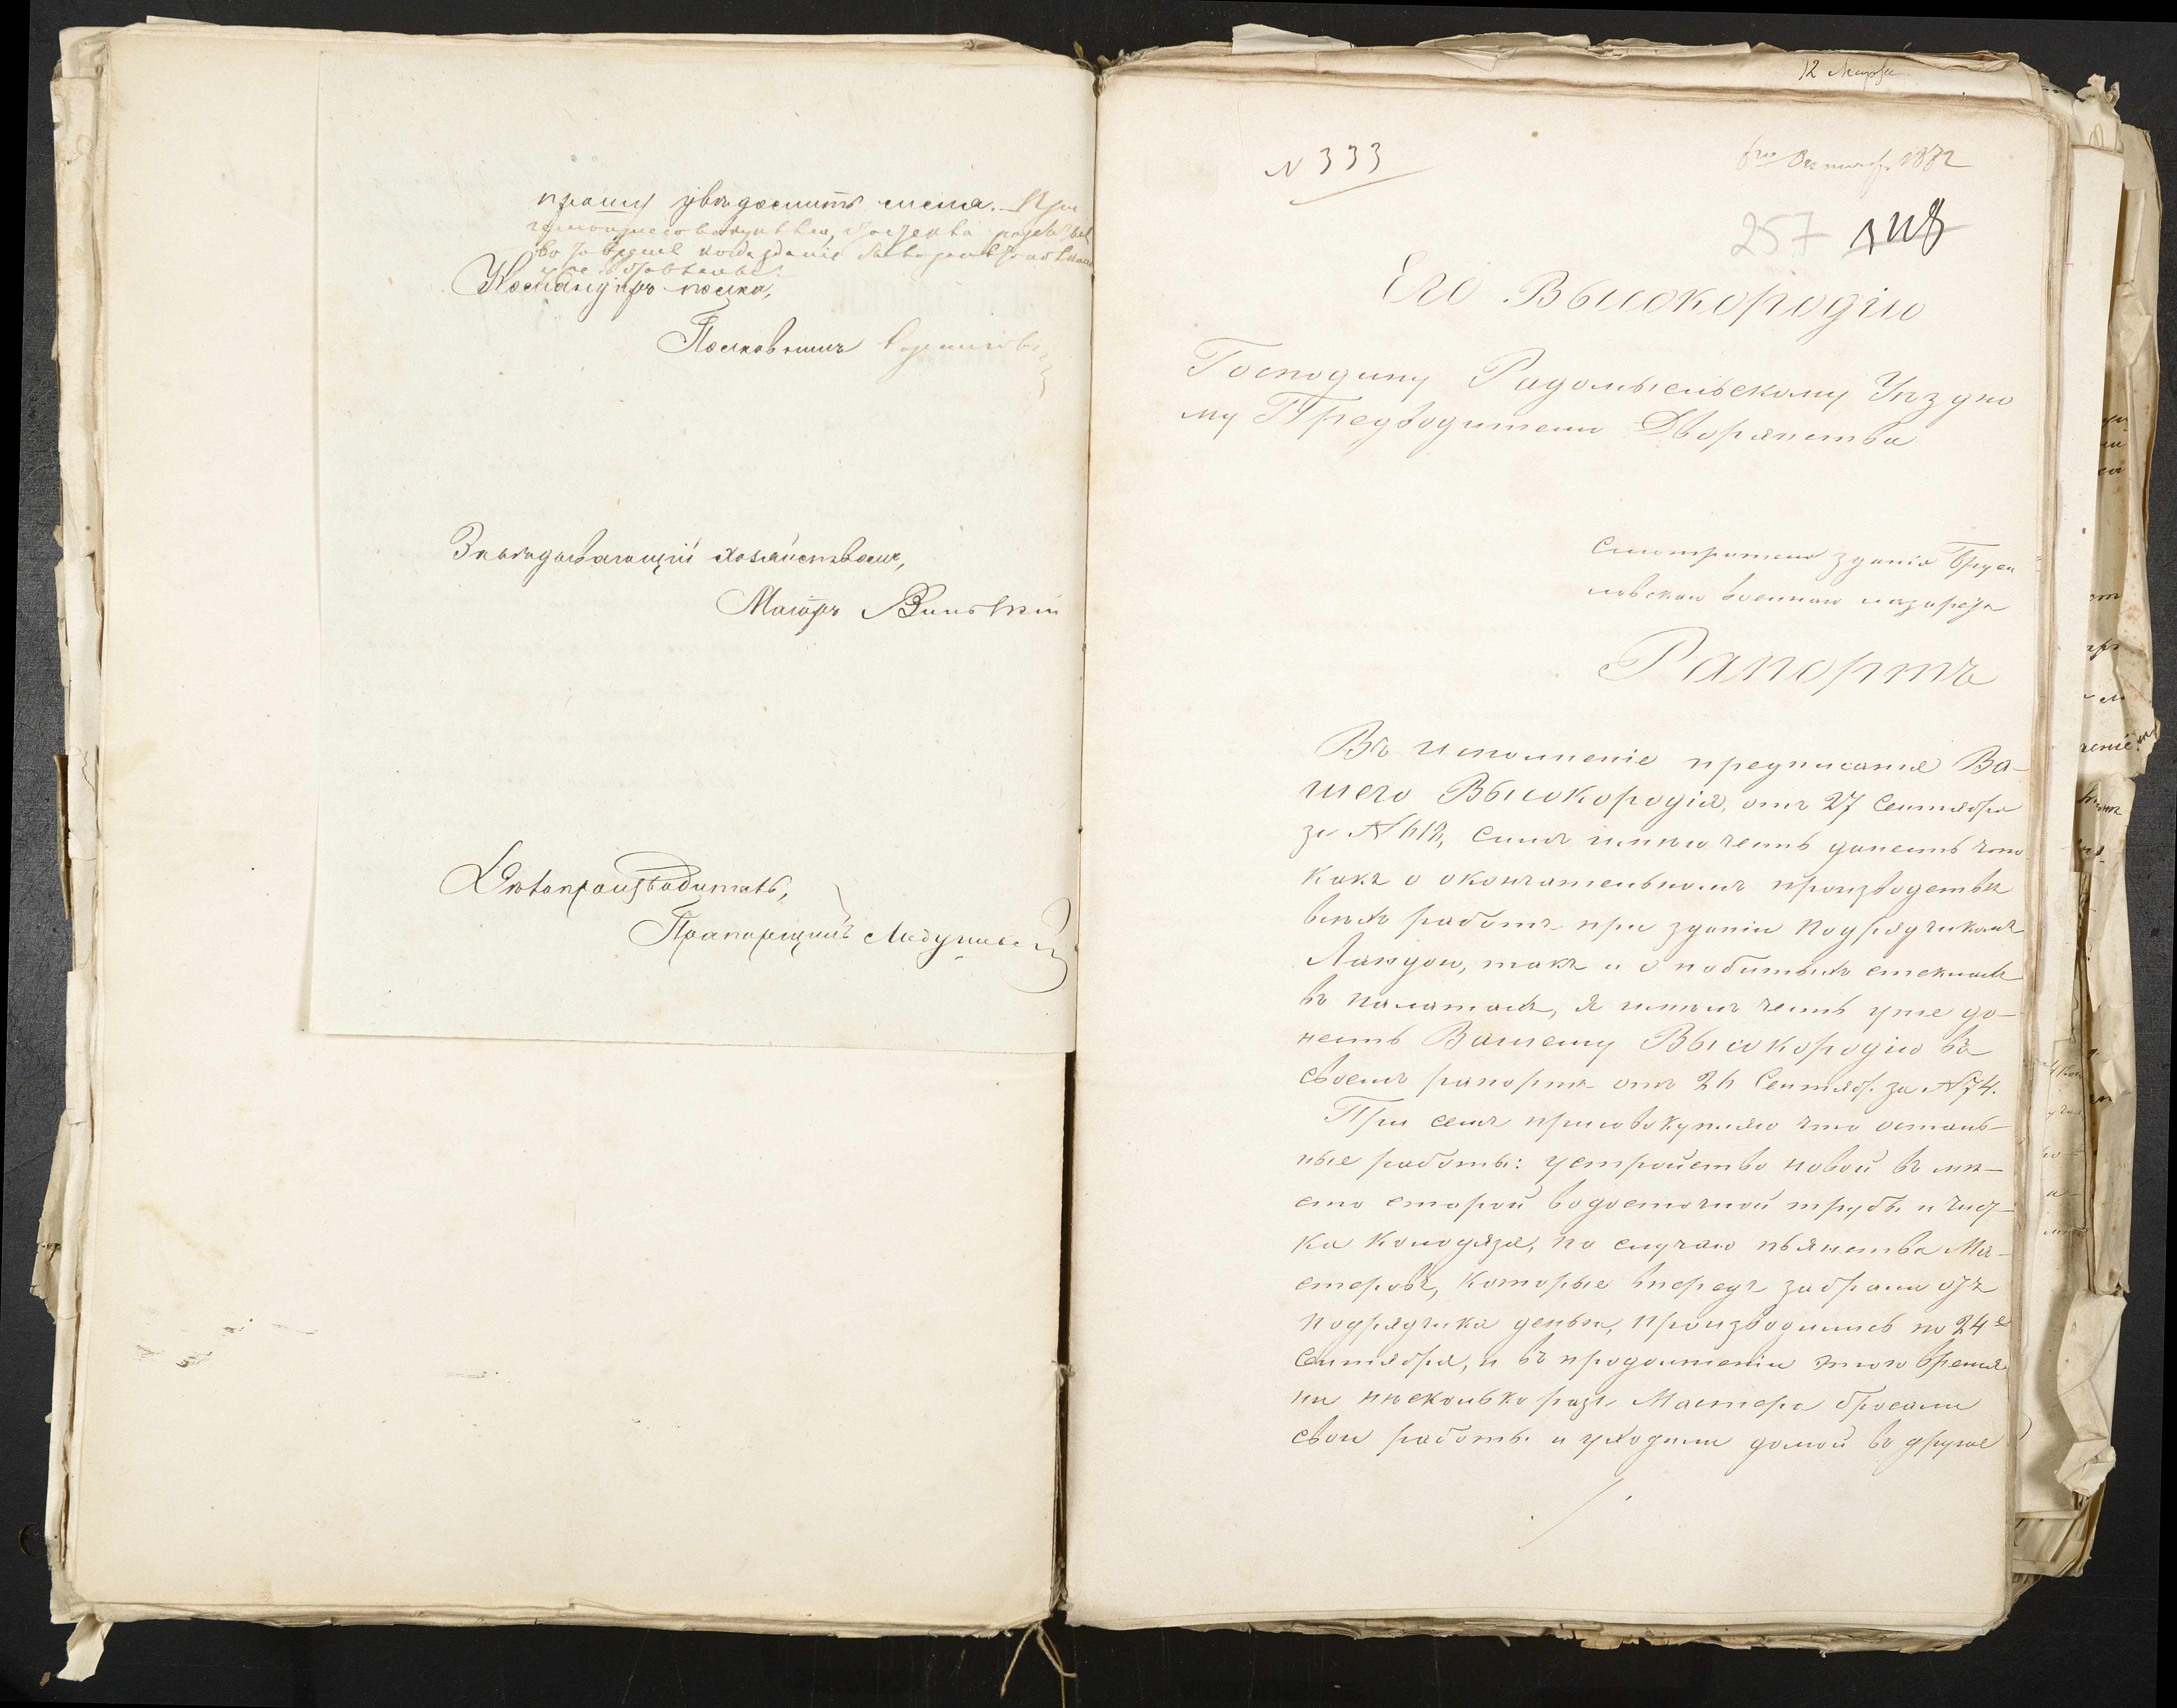 прошу увѣдомить меня. При
Командиръ полка,
Полковникъ
Завѣдывающій хозяйствомъ,
Маіоръ
Дѣлопроизводитель,
Прапорщикъ
12 Марта
№ 333
6го Октяб. 1872
257 118
Его Высокородію
Господину Радомысльскому Уѣздно
му Предводителю Дворянства
Смотрителя зданія Бруси
ловскаго военнаго лазарета
Рапортъ
Въ исполненіе предписанія Ва-
шего Высокородія, отъ 27 Сентября
за № 612, симъ имѣю честь донесть что
какъ о окончательномъ производствѣ
всѣхъ работъ при зданіи подрядчикомъ
Ландою, такъ и о побитыхъ стеклахъ
въ палатахъ, я имѣлъ честь уже до-
несть Вашему Высокородію въ
своемъ рапортѣ отъ 26 Сентяб. за № 74.
При семъ присовокупляю что осталь-
ные работы: устройство новой въ мѣ-
сто старой водосточной трубы и чист-
ка колодязя, по случаю пьянства Ма-
стеровъ, которые впередъ забрали отъ
подрядчика деньги, производились по 24е
Сентября, и въ продолженіи этого времѧ
ни нѣсколько разъ Мастера бросали
свои работы и уходили домой во другое